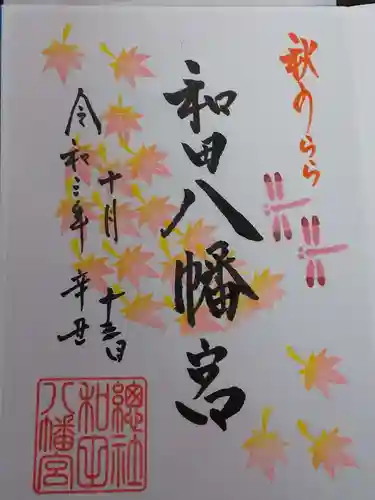 秋のうらら
和田八幡宮
令和三年 辛丑
十月 十三日
總社
和田
八幡宮